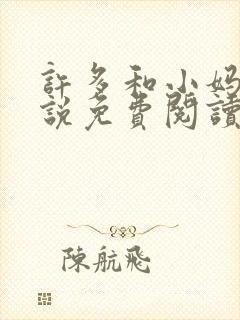 許多和小妈
説免費閱讀
陳航飛